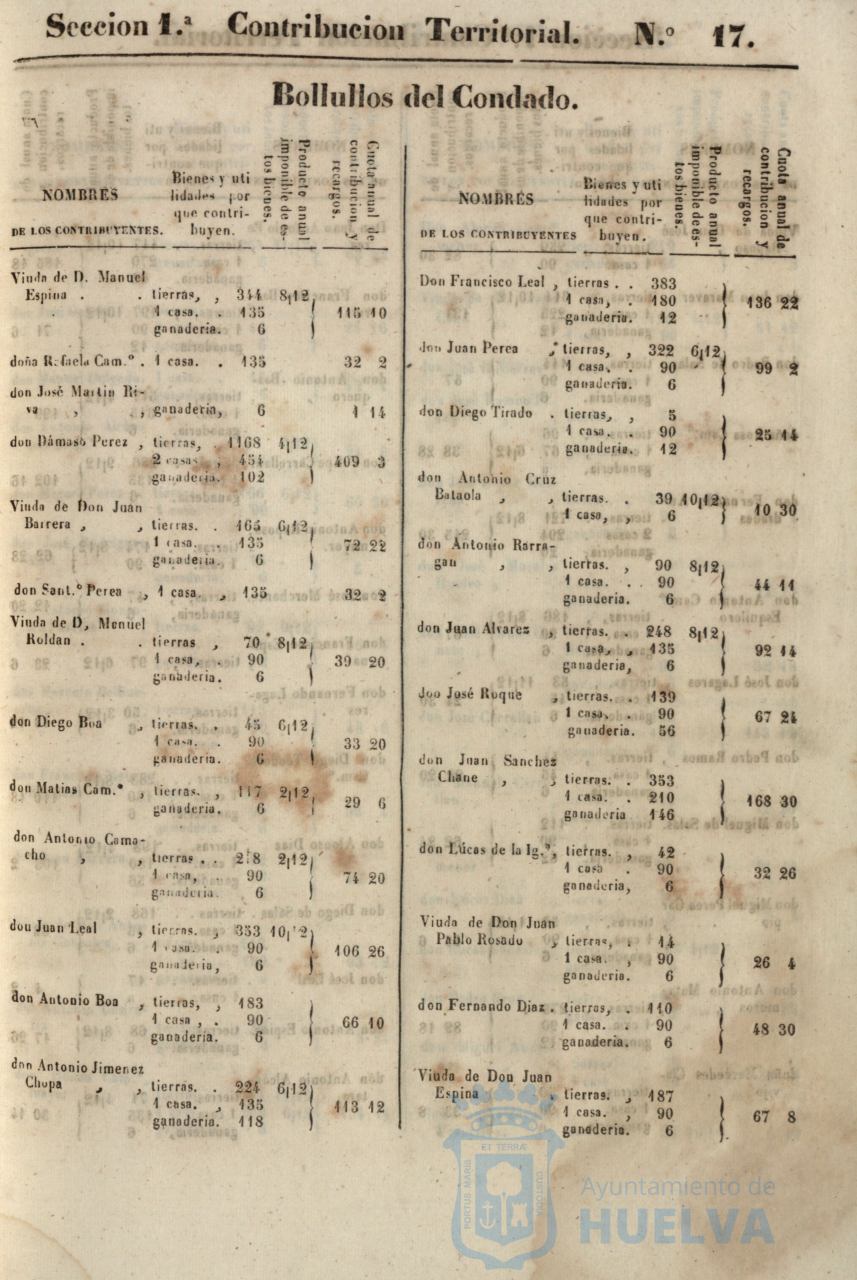 Seccion 1.ª Contribucion Territorial. N.º 17.
Bollullos del Condado.
NOMBRES
DE LOS CONTRIBUYENTES.
Bienes y uti
lidades por
que contri-
buyen.
Producto anual
imponible de es-
los bienes.
Cuota anual de
contribucion y
recargos.
Viuda de D. Manuel
Espina . . tierras, , 344 8|12
1 casa. . 135 115 10
ganaderia. 6
doña Rafaela Cam.º . 1 casa. . 135 32 2
don José Martin Ri-
va , , ganaderia, 6 1 14
don Dámaso Perez , tierras, . 1168 4|12
2 casas , 454 409 3
ganaderia. 102
Viuda de Don Juan
Barrera , , tierras. . 165 6|12
1 casa. . 135 72 22
ganaderia. 6
don Sant.º Perea , 1 casa. , 135 32 2
Viuda de D, Manuel
Roldan . . tierras , 70 8|12
1 casa, . 90 39 20
ganaderia. 6
don Diego Boa , tierras. . 45 6|12
1 casa. . 90 33 20
ganaderia. 6
don Matias Cam.º , tierras. , 117 2|12
ganaderia. 6 29 6
don Antonio Cama-
cho , , tierras . . 2|12
1 casa, . 90 74 20
ganaderia. 6
dou Juan Leal , tierras. , 353 10|12
1 casa. . 90 106 26
ganaderia, 6
don Antonio Boa , tierras, , 183
1 casa , . 90 66 10
ganaderia. 6
don Antonio Jimenez
Chopa , , tierras. . 224 6|12
1 casa. , 135 113 12
ganaderia. 118
NOMBRES
DE LOS CONTRIBUYENTES
Bienes y uti
lidades por
que contri-
buyen.
Producto anual
imponible de es-
los bienes.
Cuota anual de
contribucion y
recargos.
Don Francisco Leal , tierras . . 383
1 casa, . 180 136 22
ganaderia. 12
don Juan Perea , tierras, , 322 6|12
1 casa. . 90 99 2
ganaderia. 6
don Diego Tirado . tierras, , 5
1 casa. . 90 25 14
ganaderia. 12
don Antonio Cruz
Bataola , , tierras. . 39 10|12
1 casa, , 6 10 30
don Antonio Rarra-
gan , , tierras. , 90 8|12
1 casa. . . 90 44 11
ganaderia. 6
don Juan Alvarez , tierras. . 248 8|12
1 casa, , 135 92 14
ganaderia, 6
Joo José Roque , tierras. . 139
1 casa. . 90 67 24
ganaderia. 56
don Juan Sanchez
Chane , , tierras. . 353
1 casa. . 210 168 30
ganaderia 146
don Lúcas de la Ig.ª, tierras. , 42
1 casa . 90 32 26
ganaderia, 6
Viuda de Don Juan
Pablo Rosado , tierras, . 14
1 casa. , 90 26 4
ganaderia. 6
don Fernando Diaz . tierras, . 110
1 casa. . 90 48 30
ganaderia. 6
Viuda de Dou Juan
Espina . tierras. , 187
1 casa. , 90 67 8
ganaderia. 6
PORTUS MARIS ET TERRÆ CUSTODIA
Ayuntamiento de
HUELVA